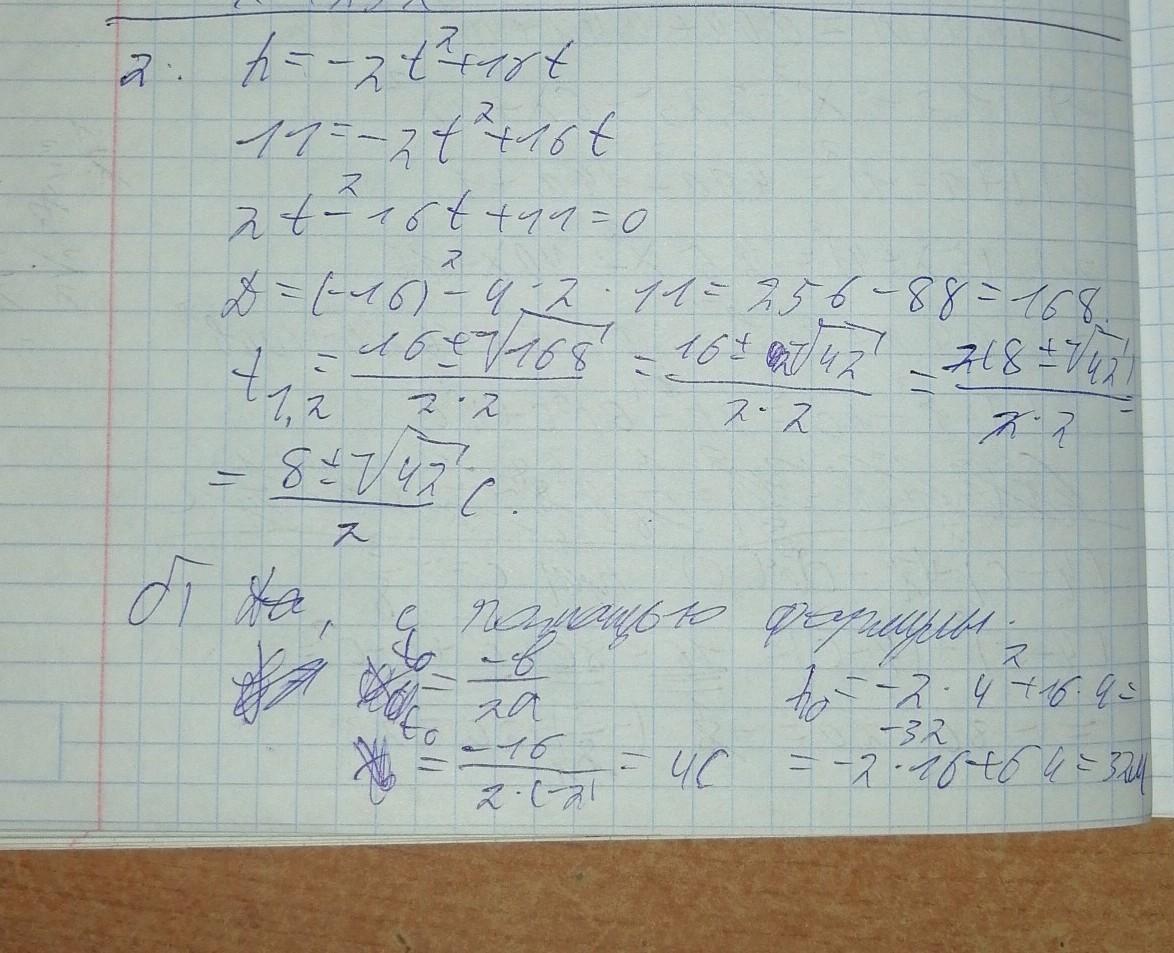 2. h = -2t²+16t
11 = -2t²+16t
2t²-16t+11=0
D = (-16)²-4·2·11 = 256-88 = 168.
t₁,₂ = (16±√168)/(2·2) = (16±2√42)/(2·2) = 2(8±√42)/(2·2) =
= (8±√42)/2 с.
б) Да, с помощью формулы.
t₀ = -в/2а h₀ = -2·4²+16·4=
t₀ = -16/(2·(-2)) = 4с = -2·16+64=32м
-32